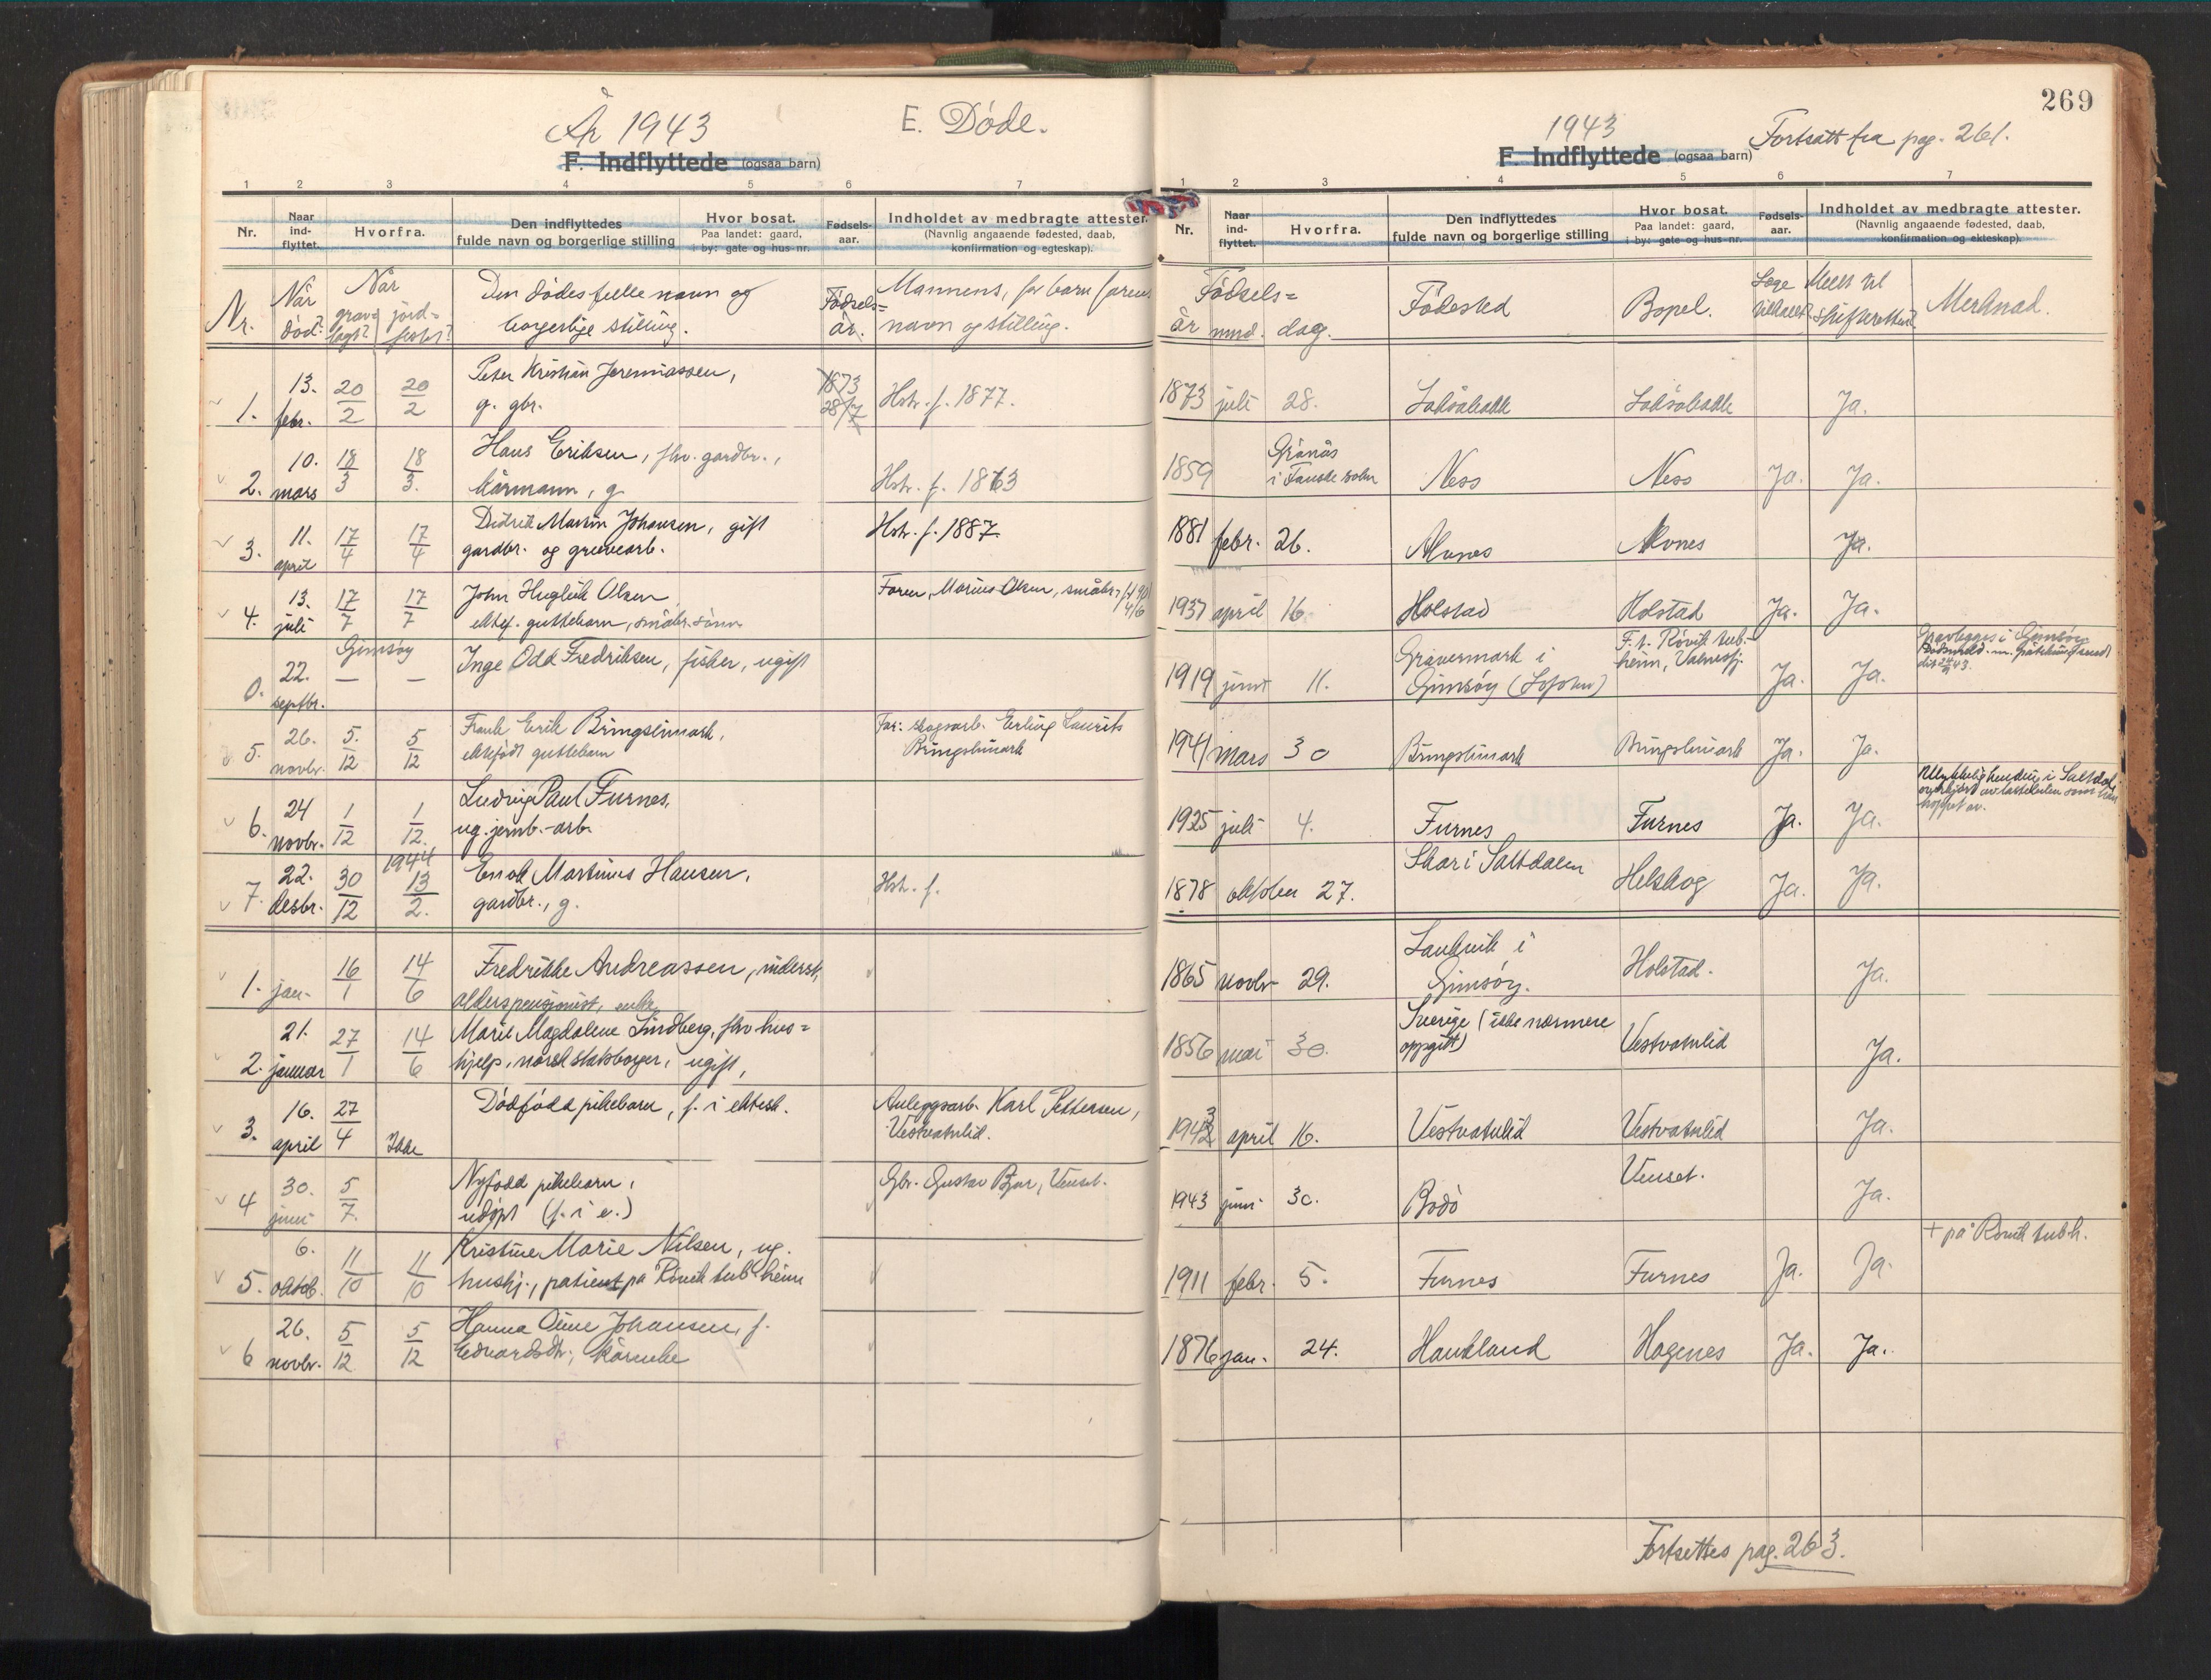 År 1943
E. Døde.
F. Indflyttede (ogsaa barn)
1 2 3 4 5 6 7
Nr.
Naar ind-flyttet.
Hvorfra.
Den indflyttedes fulde navn og borgerlige stilling
Hvor bosat. Paa landet: gaard, i by: gate og hus-nr.
Fødsels-aar.
Indholdet av medbragte attester. (Navnlig angaaende fødested, daab, konfirmation og egteskap).
Nr.
Når død?
Når grav-lagt? jord-festet?
Den dødes fulle navn og
borgerlige stilling.
Fødsels=
år.
Mannens, for barn farens
navn og stilling.
1. 13. febr. 20/2 20/2
Peter Kristian Jeremiassen,
g. gbr.
1873 28/7
Hstr. f. 1877.
2. 10. mars 18/3 18/3.
Hans Eriksen, fhv. gardbr.,
kårmann, g.
Hstr. f. 1863
3. 11. april 17/4 17/4
Didrik Martin Johansen, gift
gardbr. og gruvearb.
Hstr. f. 1887.
4. 13. juli 17/7 17/7
John Huglik Olsen
ektef. guttebarn, småbr. sønn
Faren, Marius Olsen, småbr.,
0. 22. septbr. Gimsøy — —
Inge Odd Fredriksen, fisker, ugift
5. 26. novbr. 5./12 5/12
Frank Erik Bringslimark,
ektefødt guttebarn
Far: skogsarb. Erling Laurits
Bringslimark
6. 24 novbr. 1/12 1/12.
Ludvig Paul Furnes,
ug. jernb.-arb.
7. 22. desbr. 30/12 1944 13/2.
Enok Martinus Hansen,
gardbr., g.
Hstr. f.
1. jan. 16/1 14/6
Fredrikke Andreassen, underst,
alderspensjonist, enke
2. 21. januar 27/1 14/6
Marie Magdalene Lindberg, fhv hus=
hjelp, norsk statsborger, ugift,
3. 16. april 27/4 Ikke
Dødfødd pikebarn, f. i ektesk.
Anleggsarb. Karl Pettersen,
Vestvatnlid.
4 30. juni 5/7.
Nyfødd pikebarn,
udøpt (f. i e.)
Gbr. Gustav Bjar, Venset.
5. 6. oktob. 11/10 11/10
Kristine Marie Nilsen, ug.
hushj., patient på Rövik tub. heim
6 26. novbr. 5/12 5/12
Hanna Oline Johansen, f.
Edvardsdtr., kårenke
269
1943
Fortsatt fra pag. 261.
F. Indflyttede (ogsaa barn)
1 2 3 4 5 6 7
Nr.
Naar ind-flyttet.
Hvorfra.
Den indflyttedes fulde navn og borgerlige stilling
Hvor bosat. Paa landet: gaard, i by: gate og hus-nr.
Fødsels-aar.
Indholdet av medbragte attester. (Navnlig angaaende fødested, daab, konfirmation og ekteskap).
Fødsels=
år mnd. dag.
Fødested
Bopel.
Læge tilkalt?
Meldt til skifteretten?
Merknad.
1873 juli 28. Laksåbakk Laksåbakk Ja.
1859 Grönås i Fauske sokn Ness Ness Ja. Ja.
1881 febr. 26. Alvnes Alvnes Ja.
1937 april 16 Holstad Holstad Ja. Ja.
1919 juni 11. Gravermark i
Gimsøy (Lofoten)
F. t. Rövik tub.-
heim, Valnesfj.
Ja. Ja.
Gravlegges i Gimsøy
1941 mars 30 Bringslimark Bringslimark Ja. Ja.
1925 juli 4. Furnes Furnes Ja. Ja.
Ulykkelig hending i Saltdal,
overkjørt av lastebilen som han
hoppet av.
1878 oktober 27. Skar i Saltdalen Helskog Ja. Ja.
1865 novbr 29. Laukvik i
Gimsøy.
Holstad. Ja.
1856 mai 30. Sverige (ikke nærmere
oppgitt)
Vestvatnlid Ja.
1943 april 16. Vestvatnlid Vestvatnlid Ja.
1943 juni 30. Bodö Venset. Ja.
1911 febr. 5. Furnes Furnes Ja. Ja.
+ på Rövik tub.h.
1876 jan. 24. Haukland Hagenes Ja. Ja.
Fortsettes pag. 263.